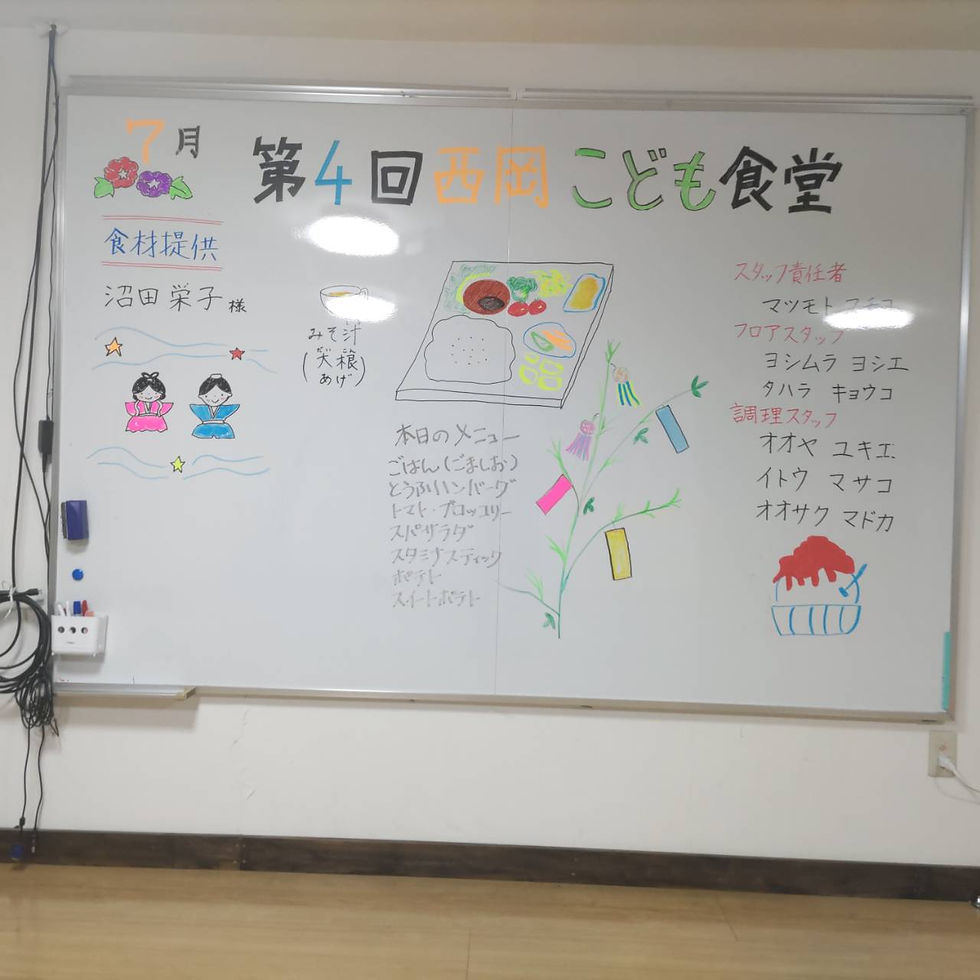 7月
第4回 西岡 こども食堂
食材提供
沼田 栄子 様
みそ汁
(大根
だいこん
あげ)
本日のメニュー
ごはん(ごましお)
とうふハンバーグ
トマト・ブロッコリー
スパサラダ
スタミナスティック
ポテト
スイートポテト
スタッフ責任者
マツモト
フロアスタッフ
ヨシムラ ヨシエ
タハラ キョウコ
調理スタッフ
オオヤ ユキエ
イトウ マサコ
オオサク マドカ